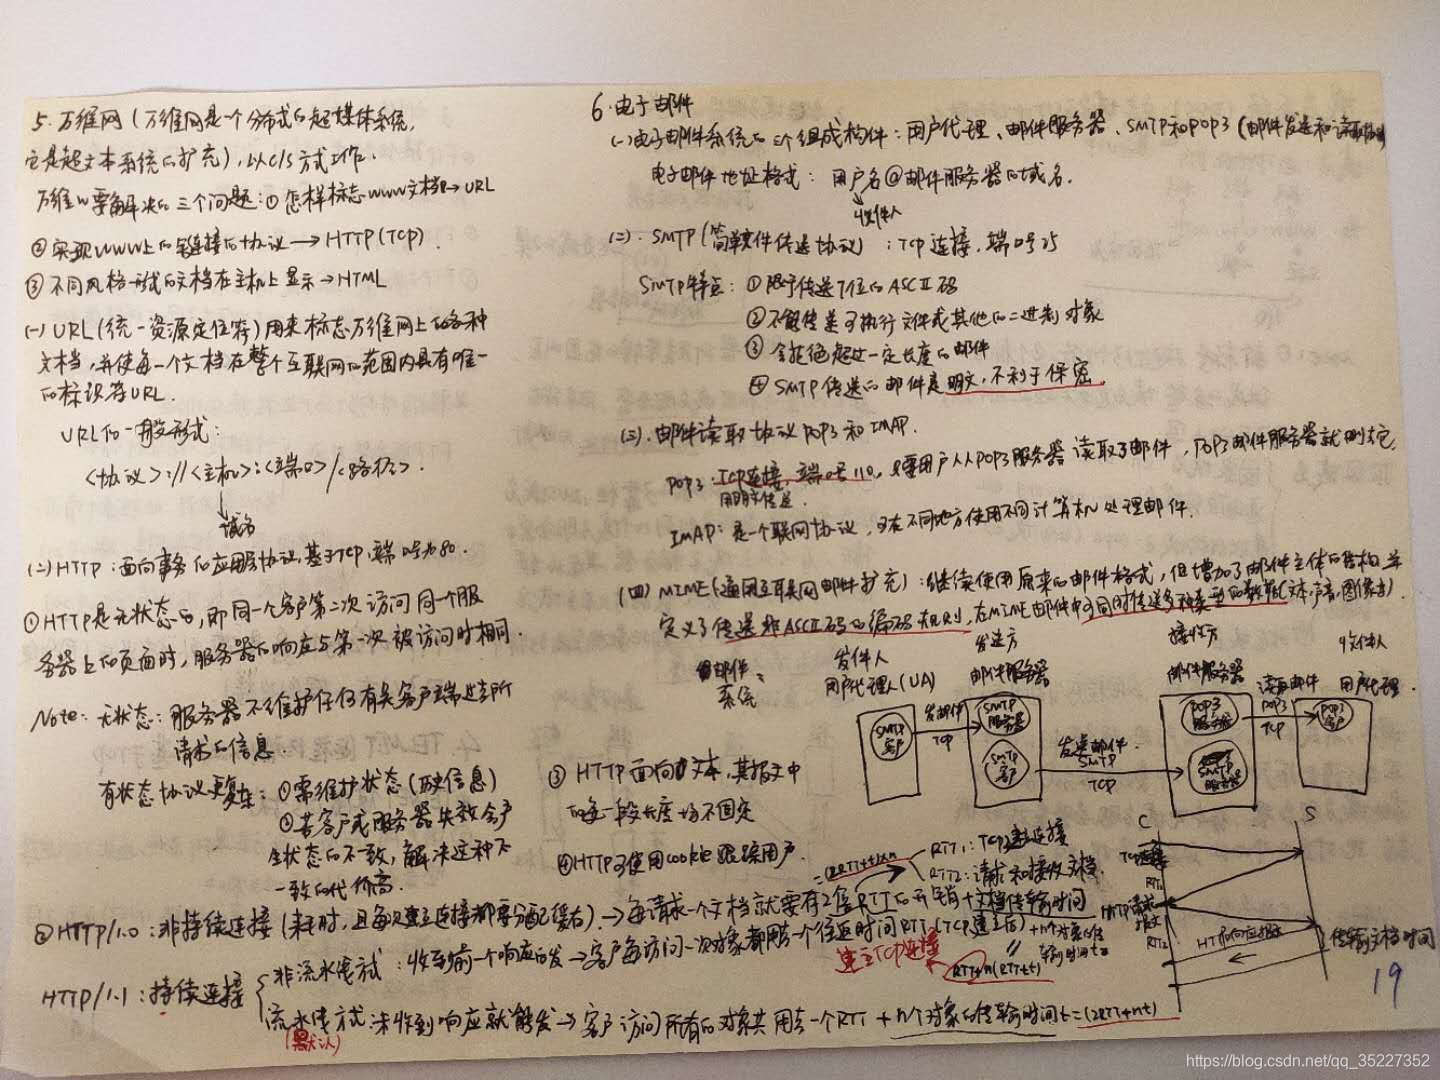 5. 万维网(万维网是一个分布式的超媒体系统,
它是超文本系统的扩充),以C/S方式工作.
万维网要解决的三个问题:① 怎样标志WWW文档→URL
② 实现WWW上的链接的协议→HTTP(TCP).
③ 不同风格形式的文档在主机上显示→HTML
(一) URL(统一资源定位符)用来标志万维网上的各种
文档,并使每一个文档在整个互联网的范围内具有唯一
的标识符URL.
URL的一般形式:
<协议>://<主机>:<端口>/<路径>.
域名
(二) HTTP:面向事务的应用层协议,基于TCP,端口号为80.
① HTTP是无状态的,即同一个客户第二次访问同一个服
务器上的页面时,服务器的响应与第一次被访问时相同.
Note:无状态:服务器不维护任何有关客户端过去所
请求的信息.
有状态协议更复杂:①需维护状态(历史信息)
②若客户或服务器失效会产
生状态的不一致,解决这种不
一致的代价高.
③ HTTP面向文本,其报文中
的每一段长度均不固定
④HTTP可使用cookie跟踪用户.
② HTTP/1.0:非持续连接(耗时,且每次建立连接都要分配缓存).→每请求一个文档就要有2倍RTT的开销+文档传输时间
=(2RTT+t)×n
RTT1:TCP建立连接
RTT2:请求和接收文档.
HTTP/1.1:持续连接
非流水线方式:收到前一个响应后发→客户每访问一次对象都用去一个往返时间RTT(TCP建立后)+n个对象的传输时间t=
建立TCP连接
RTT+n(RTT+t)
流水线方式 未收到响应就能发→客户访问所有的对象共用去一个RTT+n个对象的传输时间t=(2RTT+nt)
(默认)
6.电子邮件
(一)电子邮件系统的三个组成构件:用户代理、邮件服务器、SMTP和POP3(邮件发送和读取协议)
电子邮件地址格式:用户名@邮件服务器的域名.
收件人
(二).SMTP(简单邮件传送协议):TCP连接.端口号25
SMTP特点:①限于传送7位的ASCII码
②不能传送可执行文件或其他的二进制对象
③会拒绝超过一定长度的邮件
④SMTP传送的邮件是明文,不利于保密.
(三).邮件读取协议POP3和IMAP.
POP3:TCP连接,端口号110,只要用户从POP3服务器读取了邮件,POP3邮件服务器就删除它.
用明文传送.
IMAP:是一个联网协议,可在不同地方使用不同计算机处理邮件.
(四) MIME(通用互联网邮件扩充):继续使用原来的邮件格式,但增加了邮件主体的结构,并
定义了传送非ASCII码的编码规则,在MIME邮件中可同时传送多种类型的数据(文本,声音,图像等).
邮件
系统
发件人
用户代理人(UA)
发送方
邮件服务器
接收方
邮件服务器
收件人
用户代理.
SMTP
客户
发邮件
TCP
SMTP
服务器
SMTP
客户
发送邮件.
SMTP
TCP
POP3
服务器
SMTP
服务器
读取邮件
POP3
TCP
POP3
客户
C
S
TCP连接
RTT1
HTTP请求
报文
RTT2
HTTP响应报文
传输文档时间
19
https://blog.csdn.net/qq_35227352